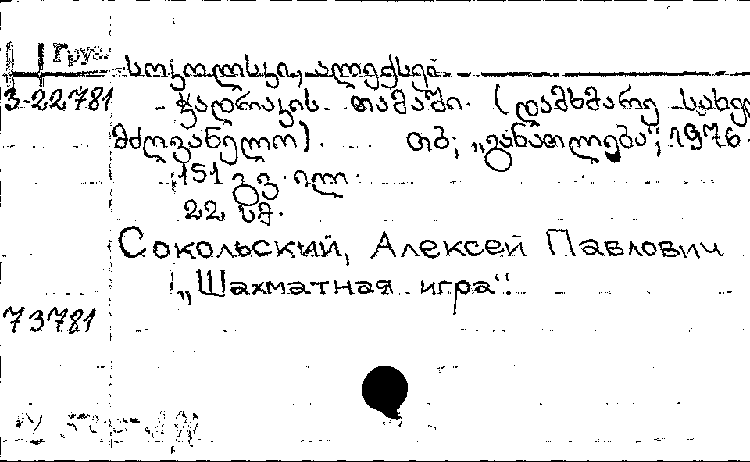 Груз.
სოკოლსკი, ალექსეი
3-22781 ჭადრაკის თამაში. (დამხმარე სახელ
მძღვანელო). თბ; „განათლება“, 1976.
151 გვ. ილ.
22 სმ.
Сокольский, Алексей Павлович
„Шахматная игра“.
73781